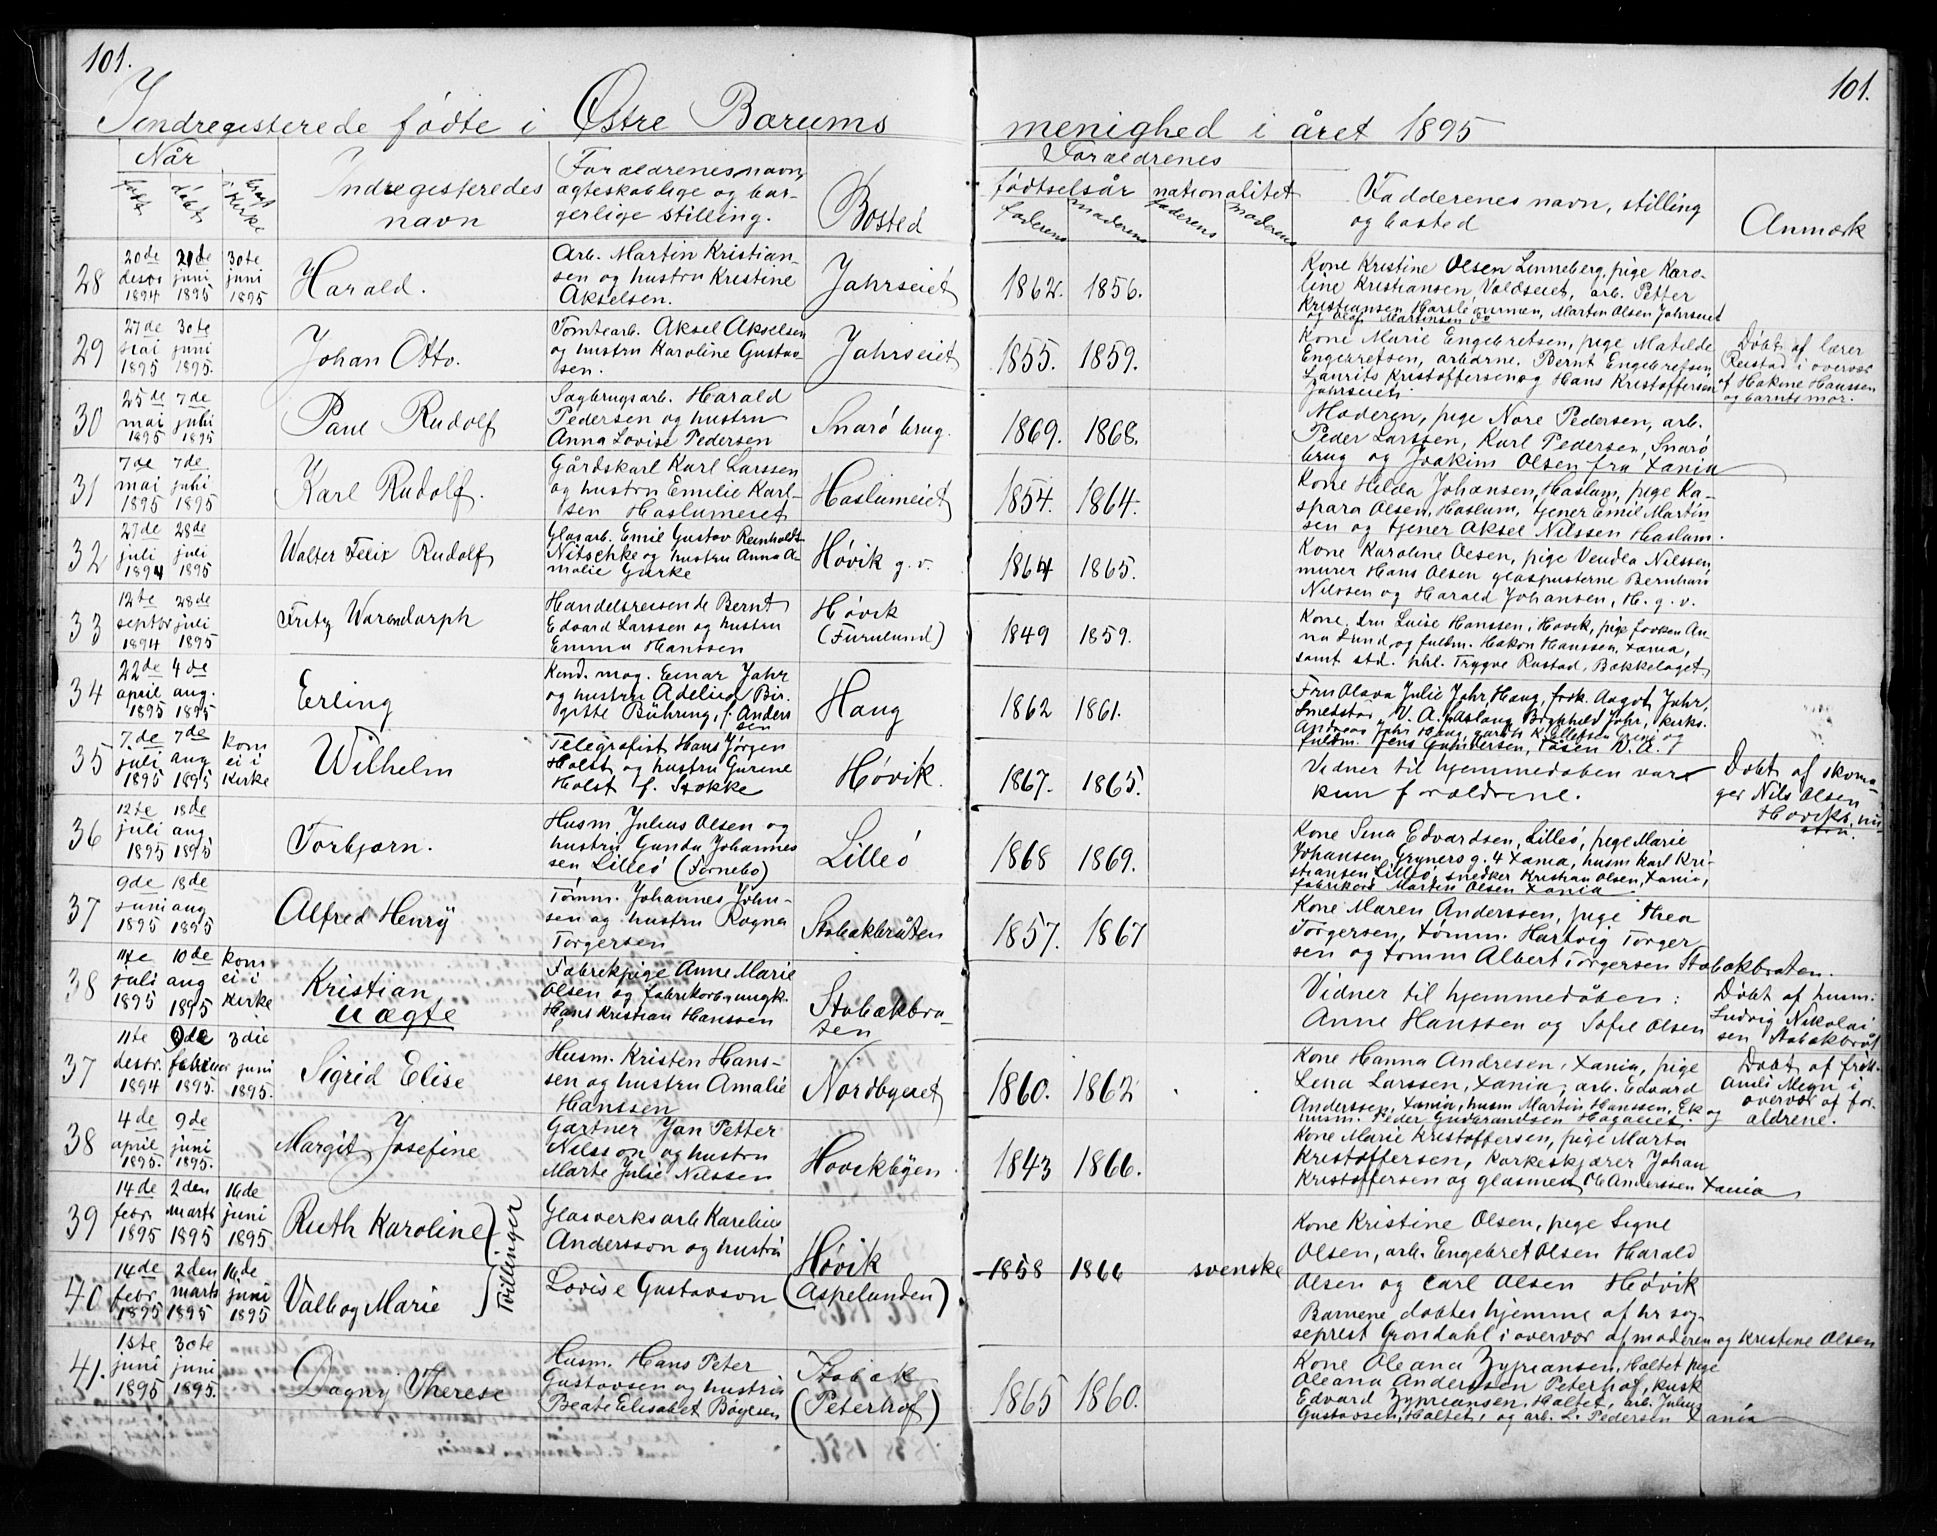 101.
101.
Indregisterede fødte i Østre Bærums menighed i året 1895
Når
født
døbt
bragt i kirke
Indregisteredes navn
Forældrenes navn, ægteskablige og borgerlige stilling.
Bosted
Forældrenes
fødtselsår
faderens
moderens
nationalitet
faderens
moderens
Faddernes navn, stilling og bosted
Anmærk
28
20de desbr 1894
21de juni 1895
30te juni 1895
Harald.
Arb. Martin Kristian-
sen og hustru Kristine
Akselsen.
Jahrseiet
1862. 1856.
Kone Kristine Olsen Linneberg, pige Karo-
line Kristiansen, Voldseiet, arb. Petter
Kristiansen, Martin Olsen Jahrseiet
og Olaf Martinsen do
29
27de mai 1895
30te juni 1895.
Johan Otto.
Tomtearb. Aksel Akselsen
og hustru Karoline Gustav-
sen.
Jahrseiet
1855. 1859.
Kone Marie Engebretsen, pige Matilde
Engebretsen, arbderne. Bernt Engebretsen
Laurits Kristoffersen og Hans Kristoffersen
Jahrseiet.
Døbt af lærer
Rustad i overvær
af Hakine Hanssen
og barnets mor.
30
25de mai 1895
7de juli 1895
Paul Rudolf
Sagbrugsarb. Harald
Pedersen og hustru
Anna Lovise Pedersen
Snarø brug.
1869. 1868.
Moderen, pige Nore Pedersen, arb.
Peder Larssen, Karl Pedersen, Snarø
brug og Joakim Olsen fra Xania
31
7de mai 1895
7de juli 1895
Karl Rudolf.
Gårdskarl Karl Larssen
og hustru Emilie Karl-
sen Haslumeiet
Haslumeiet
1854. 1864.
Kone Hilda Johansen, Haslum, pige Ka-
spara Olsen, Haslum, tjener Emil Martin
sen og tjener Aksel Nilssen Haslum.
32
27de juli 1894
28de juli 1895
Walter Felix Rudolf
Glasarb. Emil Gustav Reinholdt
Nitschke og hustru Anna A-
malie Gurke
Høvik g. v.
1864 1865.
Kone Karoline Olsen, pige Vendla Nilssen,
murer Hans Olsen glaspusterne Bernhard
Nilssen og Harald Johansen, H. g. v.
33
12te septbr 1894
28de juli 1895
Fritz Warendorph
Handelsreisende Bernt
Edvard Larssen og hustru
Emma Hanssen
Høvik
(Furulund)
1849 1859.
Kone, fru Luise Hanssen, Høvik, pige frøken An-
na Lund, og fuldm. Hakon Hanssen, Xania,
samt std. phil. Trygve Rustad, Bækkelaget
34
22de april 1895
4de aug. 1895
Erling
Kand. mag. Einar Jahr
og hustru Adelisa Bir-
gitte Bühring, f. Anders
sen
Haug
1862 1861.
Fru Olava Julie Jahr, Haug, frøk. Aagot Jahr,
Smedstad, V. A. Borghild Jahr, kirks.
Andreas Jahr Haug,
fuldm. Jens Gundersen, Tåsen V. A.
35
7de juli 1895
7de aug 1895
kom ei i kirke
Wilhelm
Telegrafist Hans Jørgen
Holst og hustru Gurine
Holst f. Stokke
Høvik.
1867. 1865.
Vidner til hjemmedåben var
kun forældrene.
Døbt af skoma-
ger Nils Olsen
36
12te juli 1895
18de aug. 1895
Torbjørn.
Husm. Julius Olsen og
hustru Gunda Johannes
sen Lilleø (Fornebo)
Lilleø
1868 1869.
Kone Sina Edvardsen, Lilleø, pige Marie
Johansen, Gryners g. 4 Xania, husm Karl Kri-
stiansen Lilleø, snedker Kristian Olsen, Xania,
fabrikarb Martin Olsen Xania
37
9de juni 1895
18de aug 1895
Alfred Henry
Tømm. Johannes John-
sen og hustru Ragna
Torgersen
Stabækbråten
1857. 1867
Kone Maren Anderssen, pige Thea
Torgersen, tømm. Hartvig Torger
sen og tømm Albert Torgersen Stabækbråten.
38
11te juli 1895
10de aug 1895
kom ei i kirke
Kristian
uægte
Fabrikpige Anne Marie
Olsen og fabrikarb. ungk.
Hans Kristian Hanssen
Stabækbrå-
ten
Vidner til hjemmedåben:
Anne Hanssen og Sofie Olsen
Døbt af husm.
Ludvig Nikolai
sen Stabækbråt.
37
11te desbr. 1894
februar 1895.
3die juni 1895.
Sigrid Elise
Husm. Kristen Hans-
sen og hustru Amalie
Hanssen
Nordbyeiet
1860. 1862
Kone Hanna Andresen, Xania, pige
Lena Larssen, Xania, arb. Edvard
Anderssen, Xania, husm Martin Hanssen, Ek og
husm. Peder Gulbrandsen Hagaeiet.
Døbt af frøk.
Amli Megn i
overvær af for-
ældrene.
38
4de april 1895.
9de juni 1895.
Margit Josefine
Gartner Jan Petter
Nilsson og hustru
Marte Julie Nilssen
Høvikbyen
1843 1866.
Kone Marie Kristoffersen, pige Marta
Kristoffersen, korkeskjærer Johan
Kristoffersen og glasmen. Anderssen Xania
39
14de febr 1895
2den marts 1895
16de juni 1895
Ruth Karoline
Tvillinger
Glasverksarb Karelius
Andersson og hustru
Lovise Gustavson
Høvik
(Aspelunden)
1858 1866 svenske
Kone Kristine Olsen, pige Signe
Olsen, arb. Engebret Olsen Harald
Olsen og Carl Olsen Høvik
Børnene døbtes hjemme af hr sog-
neprest Grøndahl i overvær af moderen og Kristine Olsen
40
14de febr 1895
2den marts 1895
16de juni 1895
Valbog Marie
41.
1ste juni 1895
30te juni 1895.
Dagny Therese
Husm. Hans Peter
Gustavsen og hustru
Beate Elisabet Bøyesen
Stabæk
(Peterhof)
1865 1860.
Kone Oleana Zypriansen, Holtet pige
Oleana Anderssen Peterhof, kusk
Edvard Zypriansen, Holtet, arb. Julius
Gustavsen, Holtet, og arb. L. Pedersen Xania